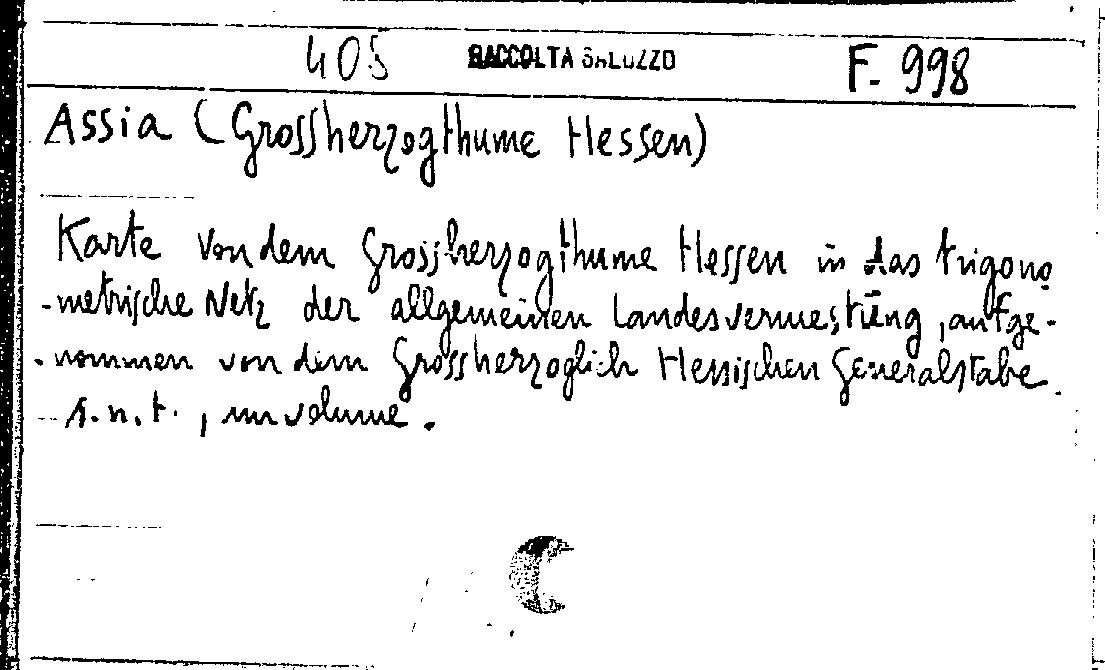 405 RACCOLTA SALUZZO F. 998
Assia (Grossherzogthume Hessen)
Karte von dem Grossherzogthume Hessen in das trigono
-metrische Netz der allgemeinen Landesvermestūng, aufge-
-nommen von dem Grossherzoglich Hessischen Generalstabe.
s.n.t., un volume.